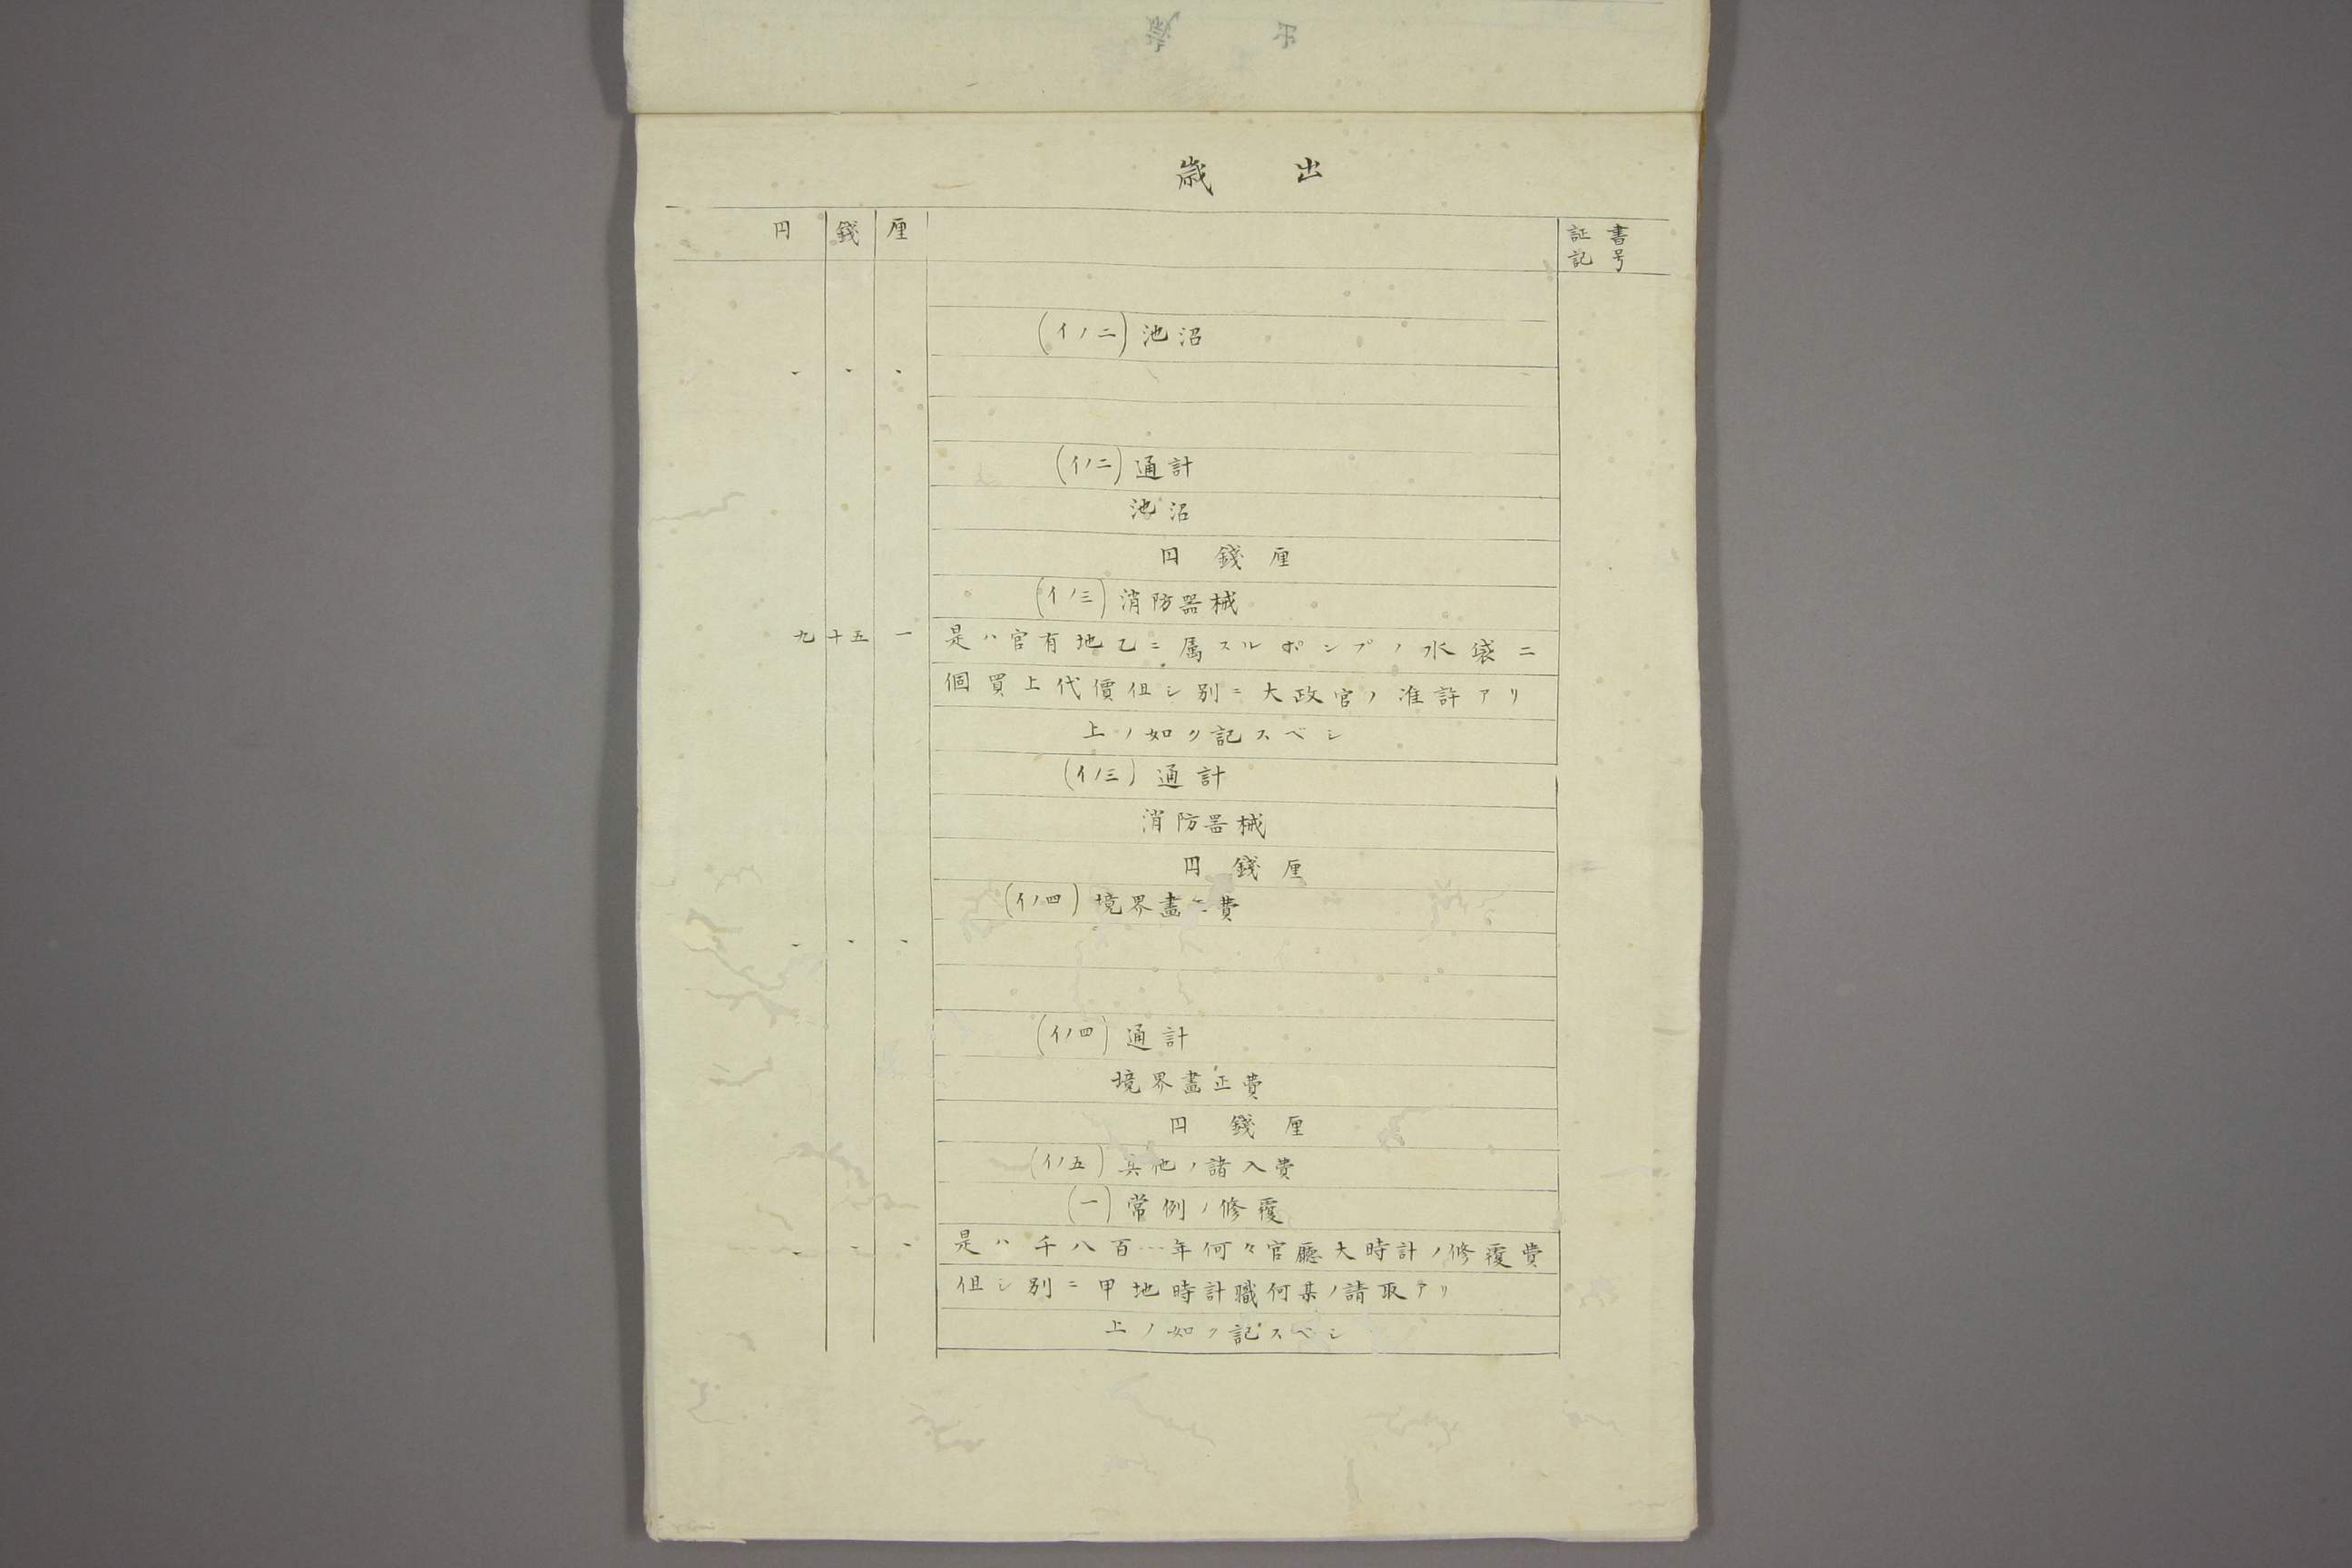 歳出
円 錢 厘
証書
記号
(イノ二)池沼
、 、 、
(イノ二)通計
池沼
円 錢 厘
(イノ三)消防器械
九 十五 一 是ハ官有地乙ニ属スルポンプノ水袋二
個買上代價但シ別ニ大政官ノ准許アリ
上ノ如ク記スベシ
(イノ三)通計
消防器械
円 錢 厘
(イノ四)境界畫正費
、 、 、
(イノ四)通計
境界畫正費
円 錢 厘
(イノ五)其他ノ諸入費
(一)常例ノ修覆
、 、 、 是ハ千八百…年何々官廳大時計ノ修覆費
但シ別ニ甲地時計職何某ノ請取アリ
上ノ如ク記スベシ